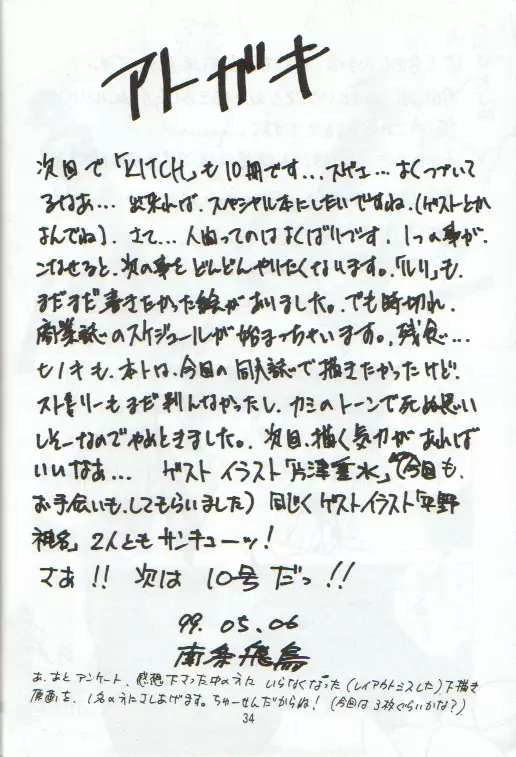 アトガキ
次回で「KITCH」も10冊です...スゲェ...よくつづいて
るなあ...出来れば、スペシャル本にしたいですね。(ゲストとか
よんでね)。さて...人間ってのはよくばりです。1つの事が、
こなせると、次の事をどんどんやりたくなります。「ルリ」も、
まだまだ書きたかった絵がありました。でも時間切れ、
商業誌のスケジュールが始まっちゃいます。残念...
ヒノキも、本トは、今回の同人誌で描きたかったけど!
ストーリーもまだ判んなかったし、カミのトーンで死ぬ思い
しそーなのでやめときました。次回、描く気力があれば
いいなあ... ゲストイラスト「片津重水」(今回も、
お手伝いも、してもらいました)同じくゲストイラスト「平野
神名」2人ともサンキューッ!
さあ!! 次は 10号だっ!!
99.05.06
南条飛鳥
あ、あとアンケート、感想下さった中の方に いらなくなった(レイアウトミスした)下描き
原画を、1名の方にさしあげます。ちゅーせんだからね!(今回は3枚ぐらいかな?)
34